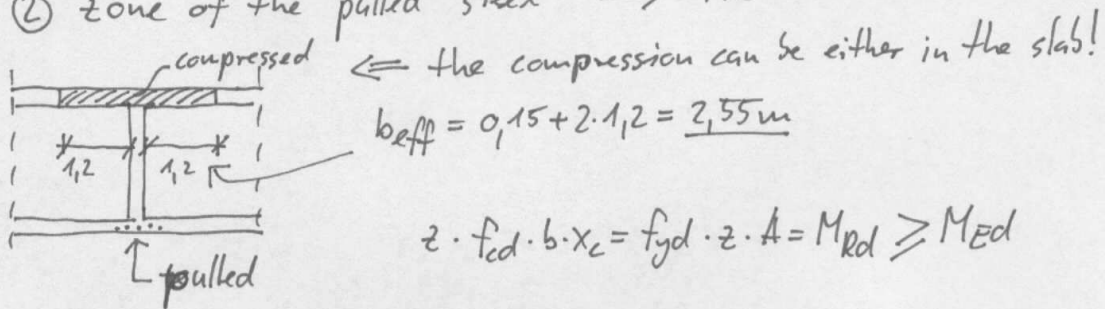 ② zone of the pulled steel
compressed
⇐ the compression can be either in the slab!
beff = 0,15 + 2·1,2 = 2,55m
1,2 1,2
z · fcd · b · xc = fyd · z · A = MRd ⩾ MEd
pulled